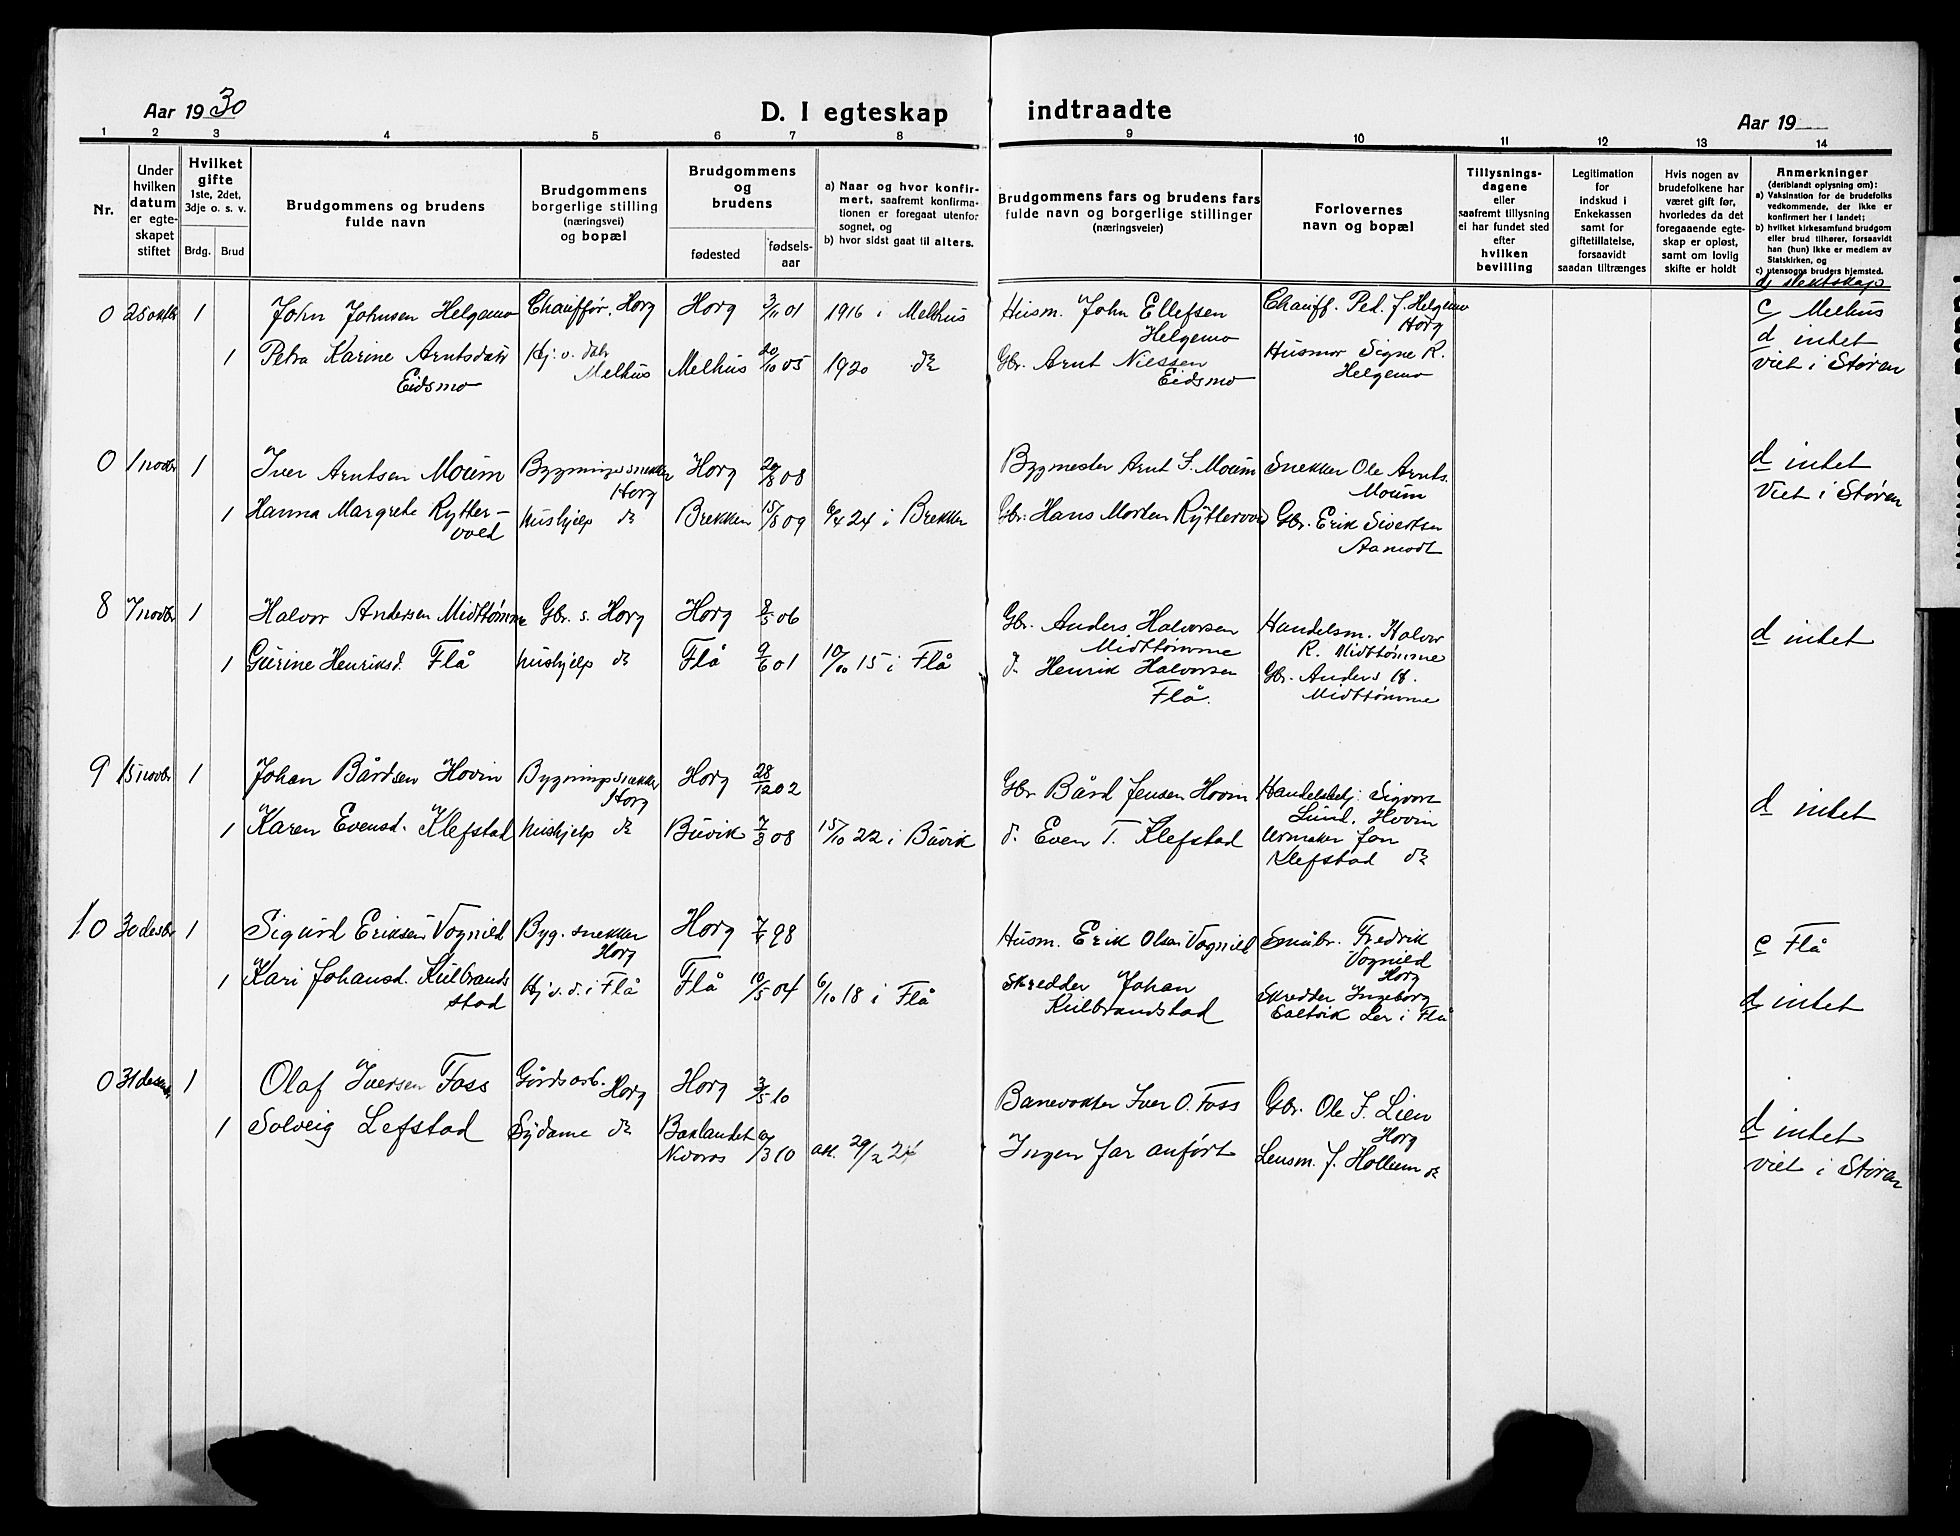 Aar 1930
D. I egteskap indtraadte
Aar 19
1 2 3 4 5 6 7 8 9 10 11 12 13 14
Nr.
Under hvilken datum er egteskapet stiftet
Hvilket gifte
1ste, 2det, 3dje o. s. v.
Brdg. Brud
Brudgommens og brudens fulde navn
Brudgommens borgerlige stilling (næringsvei) og bopæl
Brudgommens og brudens
fødested
fødselsaar
a) Naar og hvor konfirmert, saafremt konfirmationen er foregaat utenfor sognet, og
b) hvor sidst gaat til alters.
Brudgommens fars og brudens fars fulde navn og borgerlige stillinger (næringsveier)
Forlovernes navn og bopæl
Tillysningsdagene eller saafremt tillysning ei har fundet sted efter hvilken bevilling
Legitimation for indskud i Enkekassen samt for giftetillatelse, forsaavidt saadan tiltrænges
Hvis nogen av brudefolkene har været gift før, hvorledes da det foregaaende egteskap er opløst, samt om lovlig skifte er holdt
Anmerkninger
(deriblandt oplysning om):
a) Vaksination for de brudefolks vedkommende, der ikke er konfirmert her i landet;
b) hvilket kirkesamfund brudgom eller brud tilhører, forsaavidt han (hun) ikke er medlem av Statskirken, og
c) utensogns bruders hjemsted.
d) slektskap
0 26 oktbr 1 John Johnsen Helgemo Chauffør, Horg Horg 3/11 01 1916 i Melhus Husm. John Ellefsen Helgemo Chauff. Ped. J. Helgemo Horg c Melhus
1 Petra Karine Arntsdatr Eidsmo Hj. v. datr Melhus Melhus 20/10 05 1920 do Gbr. Arnt Nilssen Eidsmo Husmor Signe R. Helgemo d intet viet i Støren
0 1 novbr 1 Iver Arntsen Moum Bygningssnekker Horg Horg 20/8 08 Bygmester Arnt I. Moum Snekker Ole Arnts. Moum d intet
1 Hanna Margrete Ryttervold hushjelp do Brekken 15/8 09 6/4 24 i Brekken Gbr. Hans Morten Ryttervold Gbr. Erik Sivertsen Aamodt Viet i Støren
8 7 novbr 1 Halvor Andersen Midttømme Gbr. s. Horg Horg 8/5 06 Gbr. Anders Halvorsen Midttømme Handelsm. Halvor R. Midttømme d intet
1 Gurine Henriksd. Flå hushjelp do Flå 9/6 01 10/10 15 i Flå d. Henrik Halvorsen Flå. Gbr. Anders H. Midttømme
9 15 novbr 1 Johan Bårdsen Hovin Bygningssnekker Horg Horg 28/12 02 Gbr Bård Jensen Hovin Handelsbetj. Sigvart Lund, Hovin d intet
1 Karen Evensd. Klefstad hushjelp do Buvik 7/3 08 15/10 22 i Buvik d. Even T. Klefstad Urmaker Jon Klefstad do
10 30 desbr 1 Sigurd Eriksen Vognild Byg. snekker Horg Horg 98 Husm. Erik Olsen Vognild Småbr. Fredrik Vognild Horg c Flå
1 Kari Johansd. Kulbrandstad Hj. v. d. i Flå Flå 10/5 04 6/10 18 i Flå Skredder Johan Kulbrandstad Skredder Ingeborg Ler i Flå d intet
0 31 desbr 1 Olaf Iversen Foss Gårdsarb. Horg Horg 3/5 10 Banevokter Iver O. Foss Gbr. Ole J. Lien Horg d intet
1 Solveig Lefstad Sydame do Baklandet 3 10 29/2 24 Ingen far anført Lensm. J. Hollum do viet i Støren